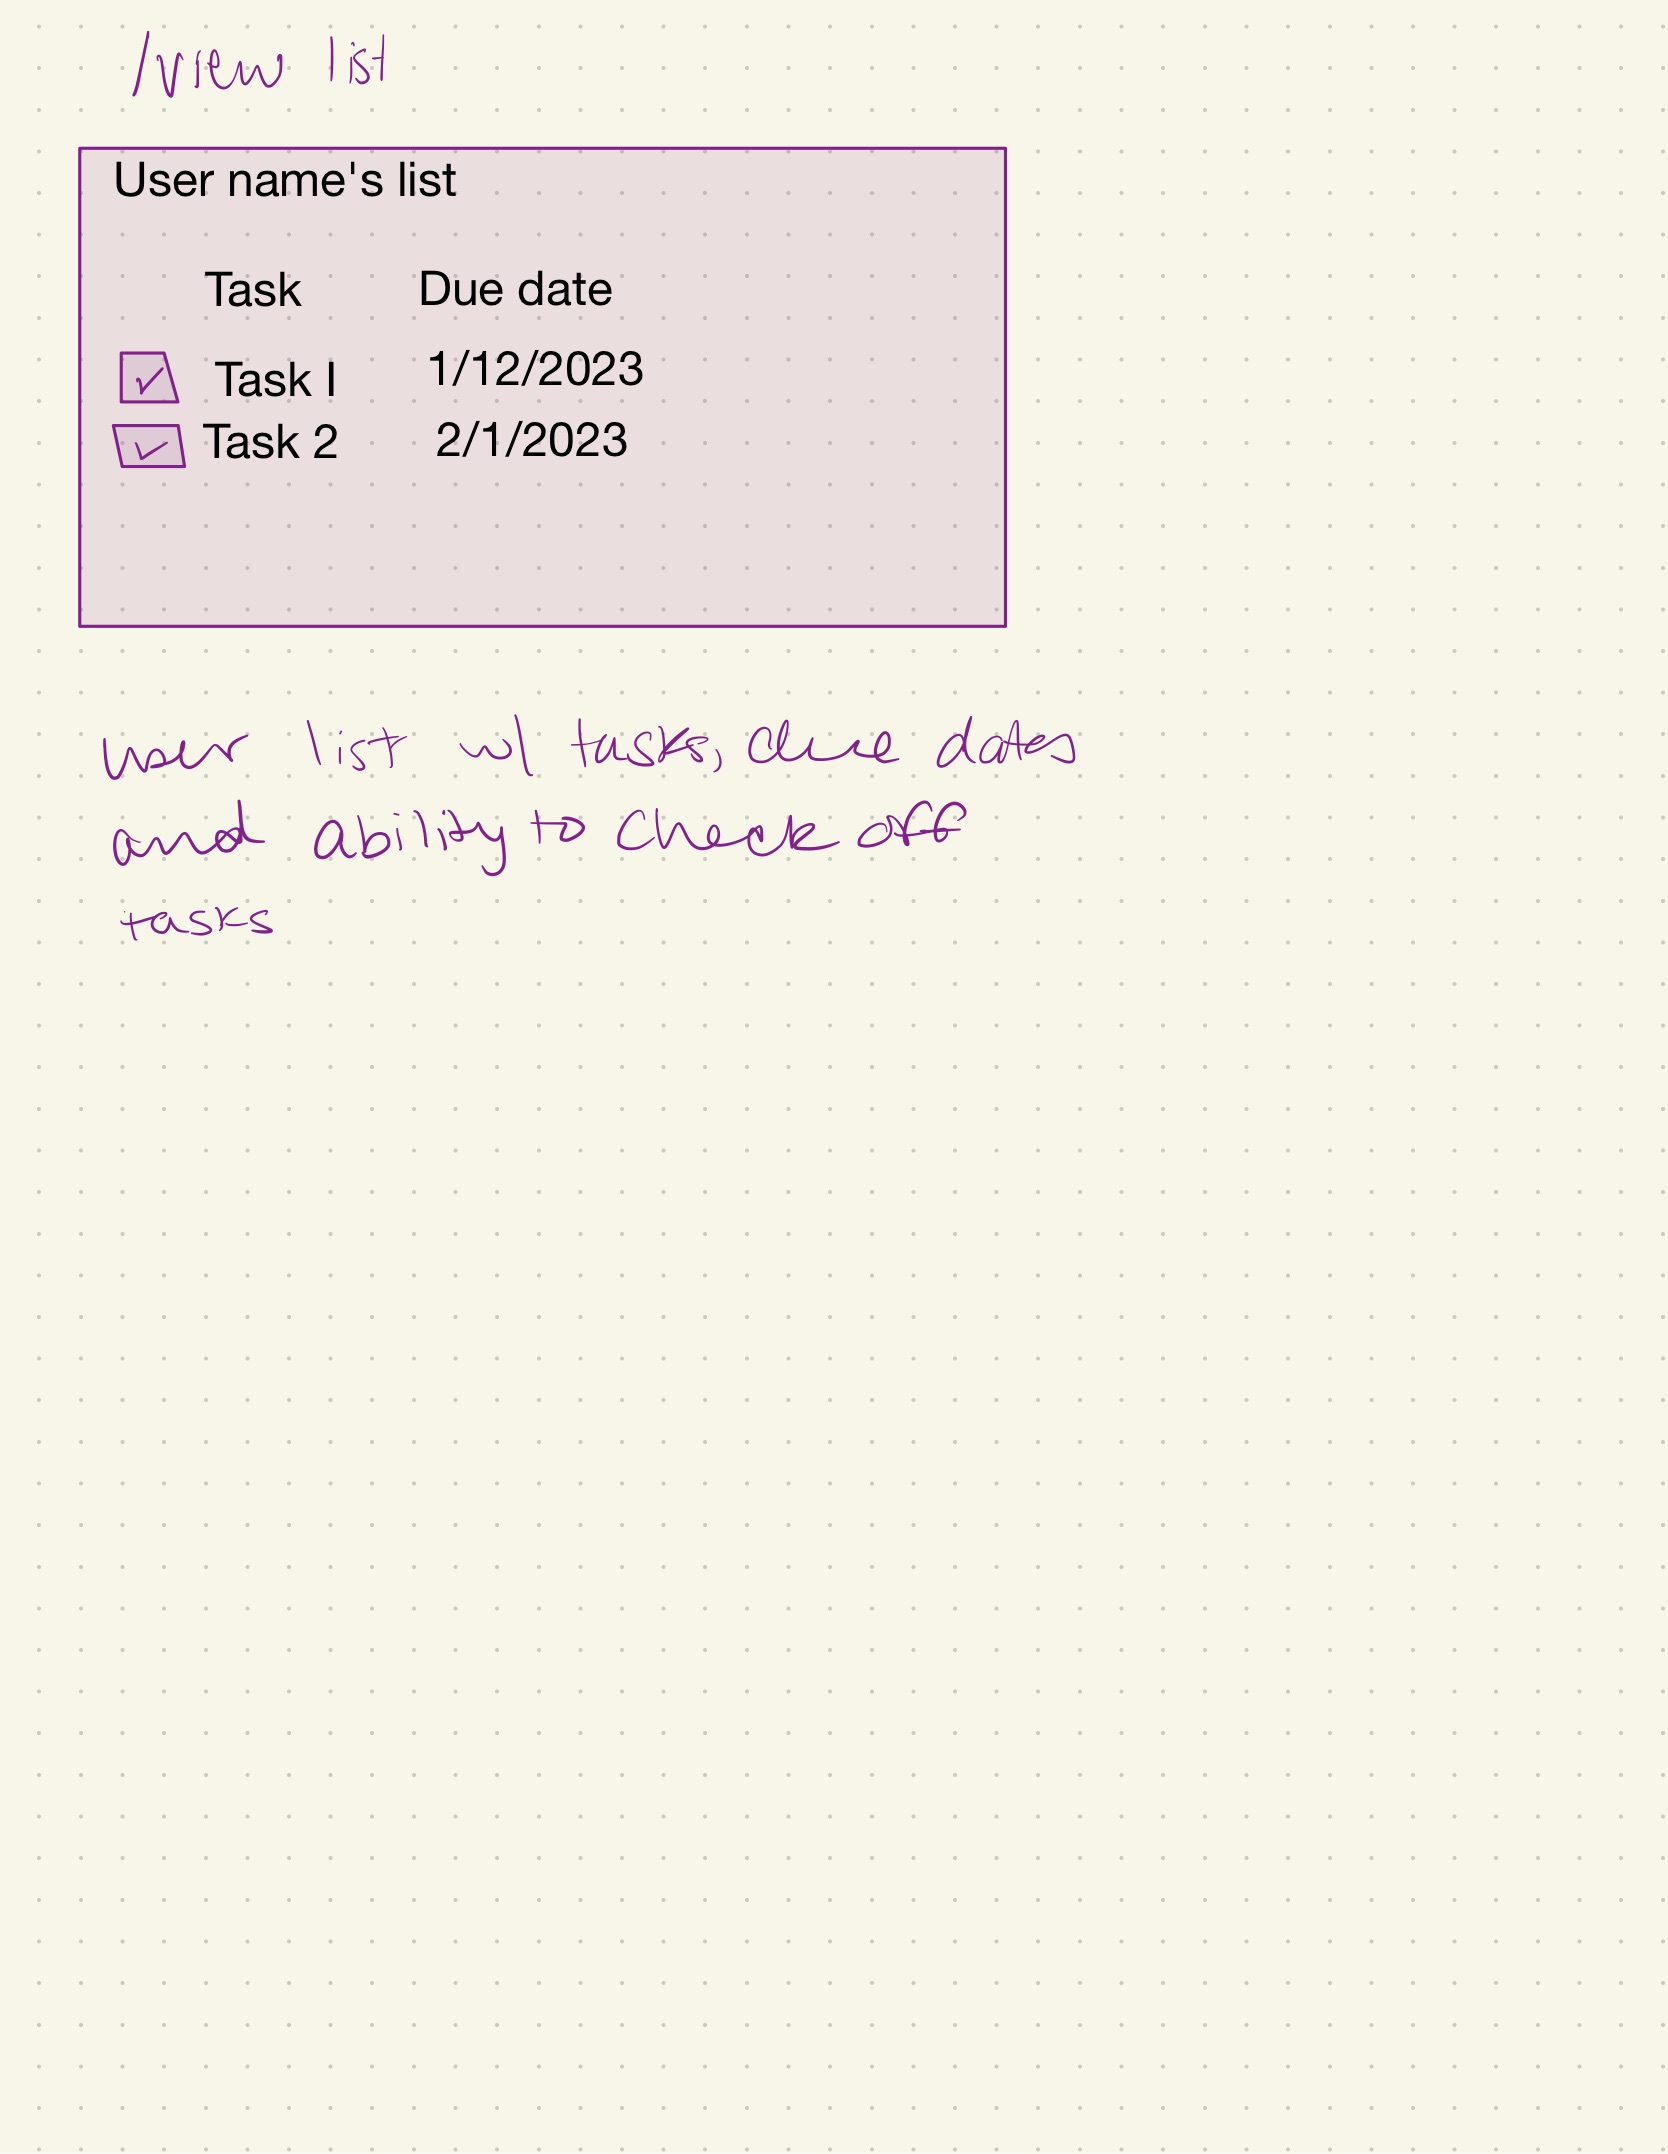 /view list
User name's list
Task Due date
Task 1 1/12/2023
Task 2 2/1/2023
user list w/ tasks, due dates
and ability to check off
tasks